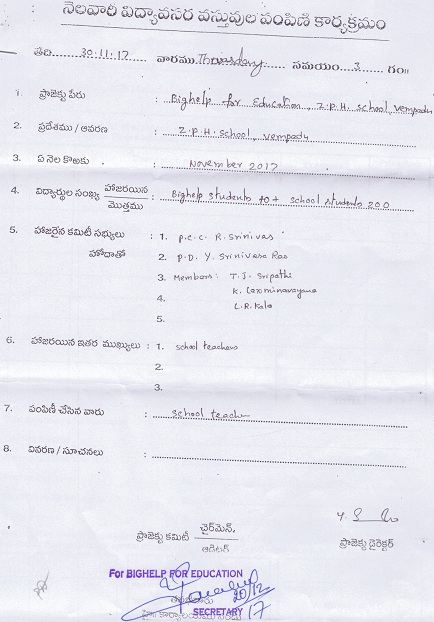 నెలవారి విద్యావసర వస్తువుల పంపిణి కార్యక్రమం
తేది 30.11.17 వారము Thursday సమయం 3 గం॥
1. ప్రాజెక్టు పేరు : Bighelp for Education, Z.P.H. School, Vempadu
2. ప్రదేశము / ఆవరణ : Z.P.H. School, Vempadu
3. ఏ నెల కొఱకు : November 2017
4. విద్యార్థుల సంఖ్య హాజరయిన : Bighelp students 40+ school students 200
మొత్తము
5. హాజరైన కమిటీ సభ్యులు : 1. P.C.C. R. Srinivas
హోదాతో 2. P.D. Y. Srinivasa Rao
3. Members: T.J. Sripathi
4. K. Laxminarayana
L.R. Kala
5.
6. హాజరయిన ఇతర ముఖ్యులు : 1. School teachers
2.
3.
7. పంపిణీ చేసిన వారు : School teacher
8. వివరణ / సూచనలు :
ప్రాజెక్టు కమిటీ ఛైర్మెన్, ప్రాజెక్టు డైరెక్టర్
ఆడిటర్
For BIGHELP FOR EDUCATION
20/12
SECRETARY 17